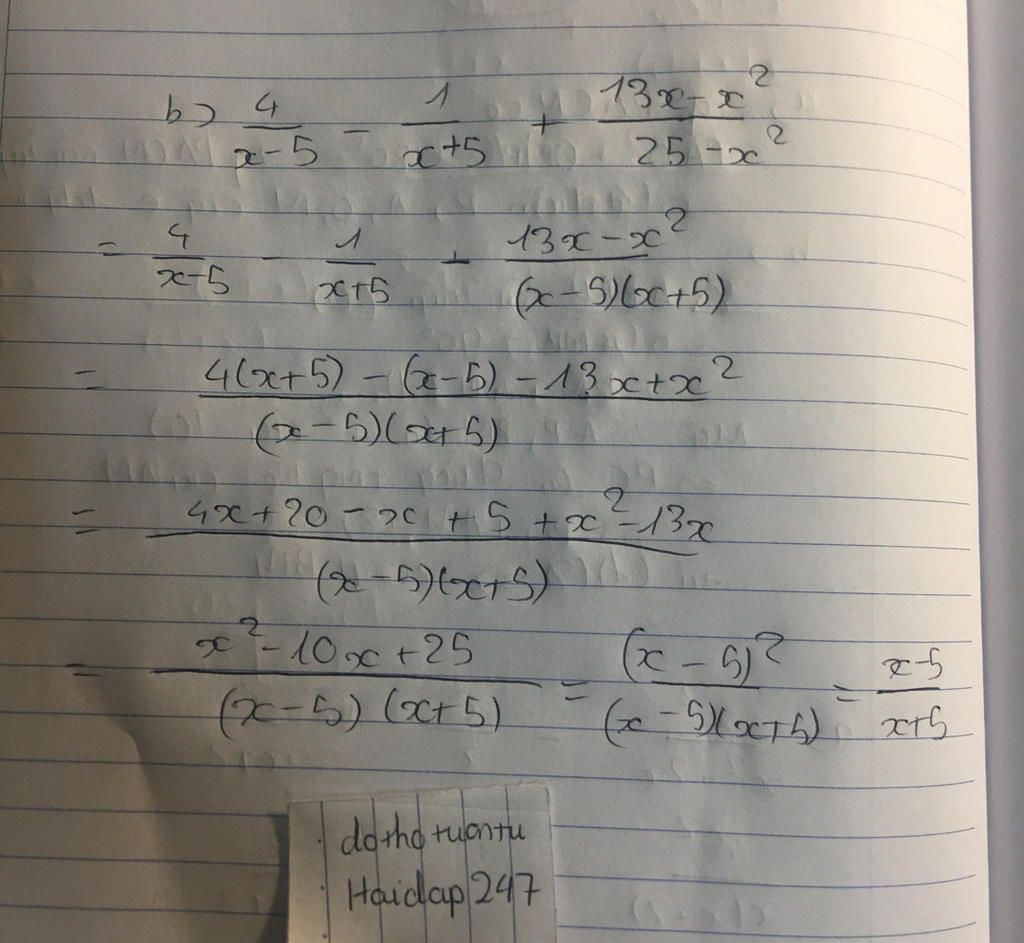 b) 4/(x-5) - 1/(x+5) + (13x-x²)/(25-x²)
= 4/(x-5) - 1/(x+5) - (13x-x²)/((x-5)(x+5))
= (4(x+5) - (x-5) - 13x+x²)/((x-5)(x+5))
= (4x+20-x+5+x²-13x)/((x-5)(x+5))
= (x²-10x+25)/((x-5)(x+5)) = (x-5)²/((x-5)(x+5)) = (x-5)/(x+5)
dothotuantu
Hoidap247